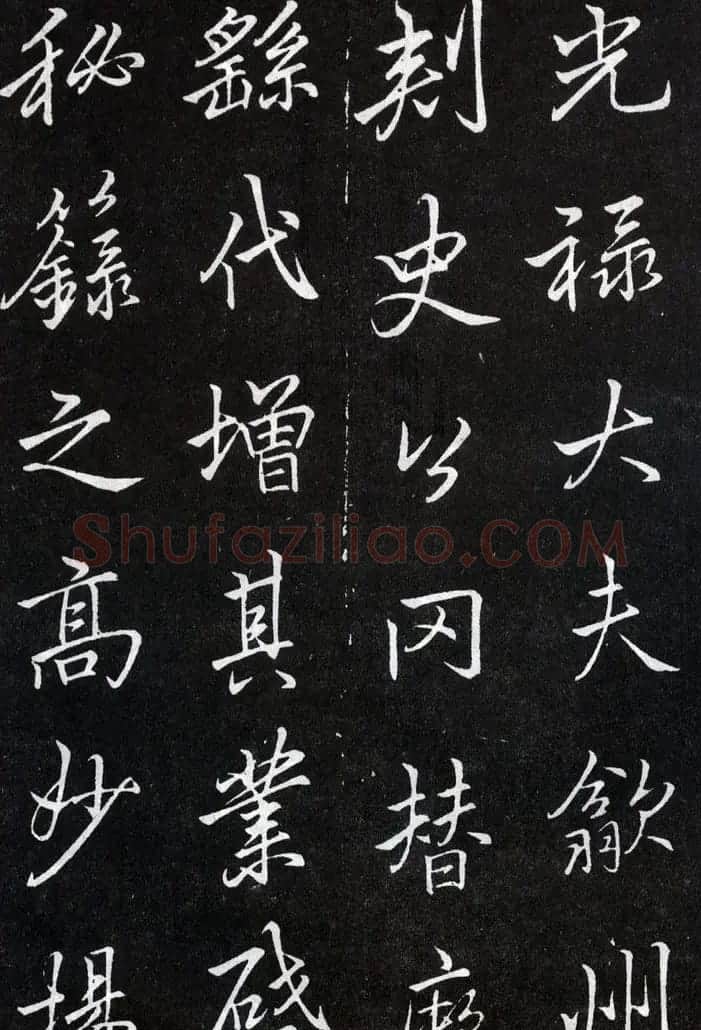 光禄大夫歙州
刺史公罔替
繇代增其業
秘籙之高妙
Shufaziliao.COM